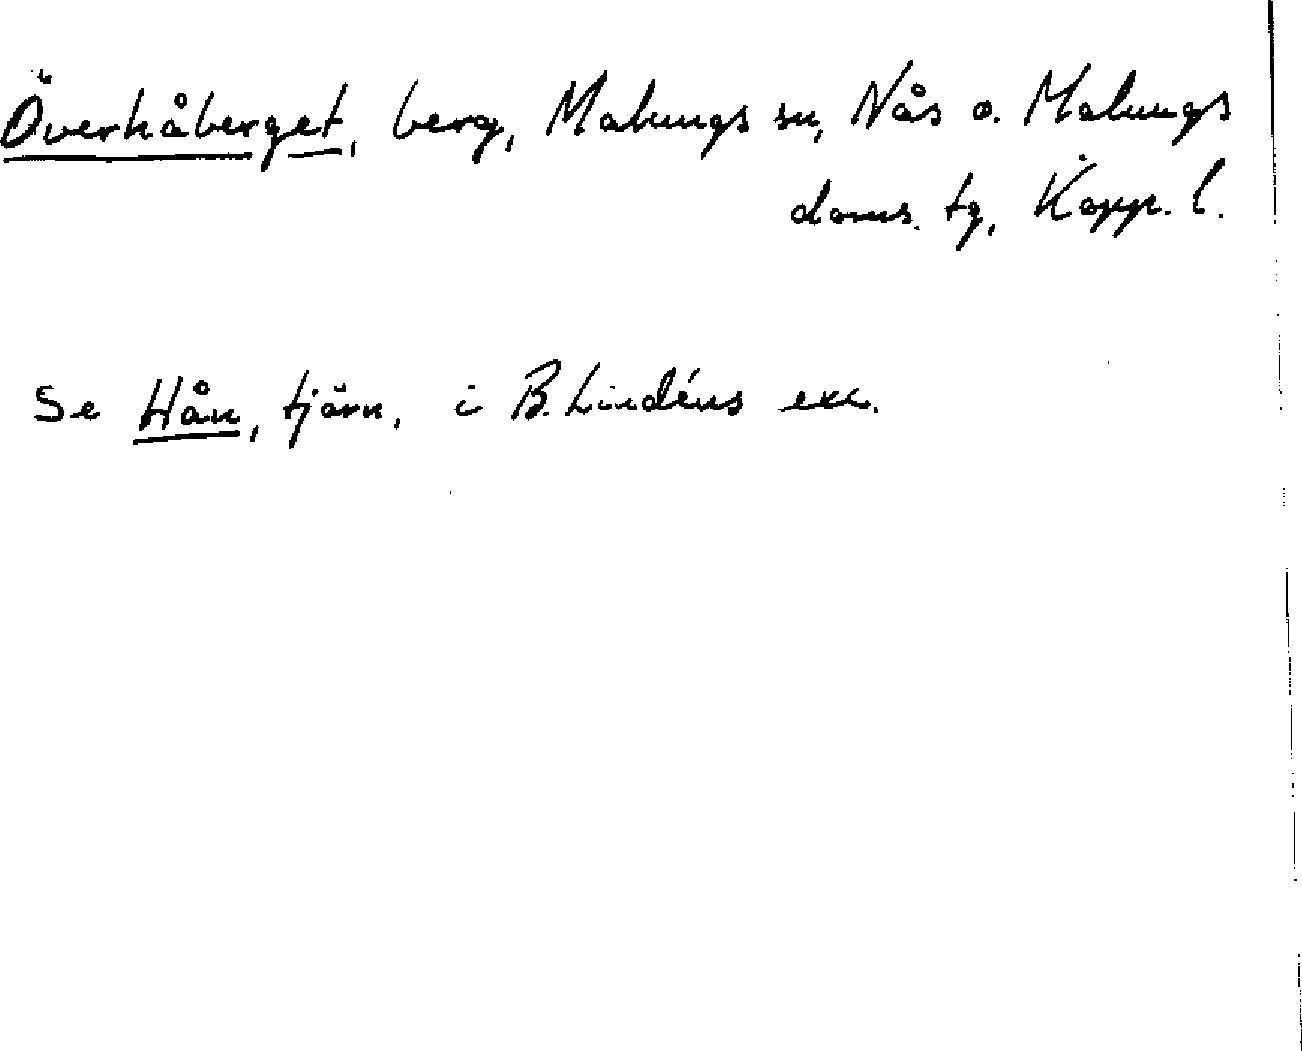 Överhåberget, berg, Malungs sn, Nås o. Malungs
doms. tg, Kopp. l.
Se Hån, tjärn, i B. Lindéns exc.